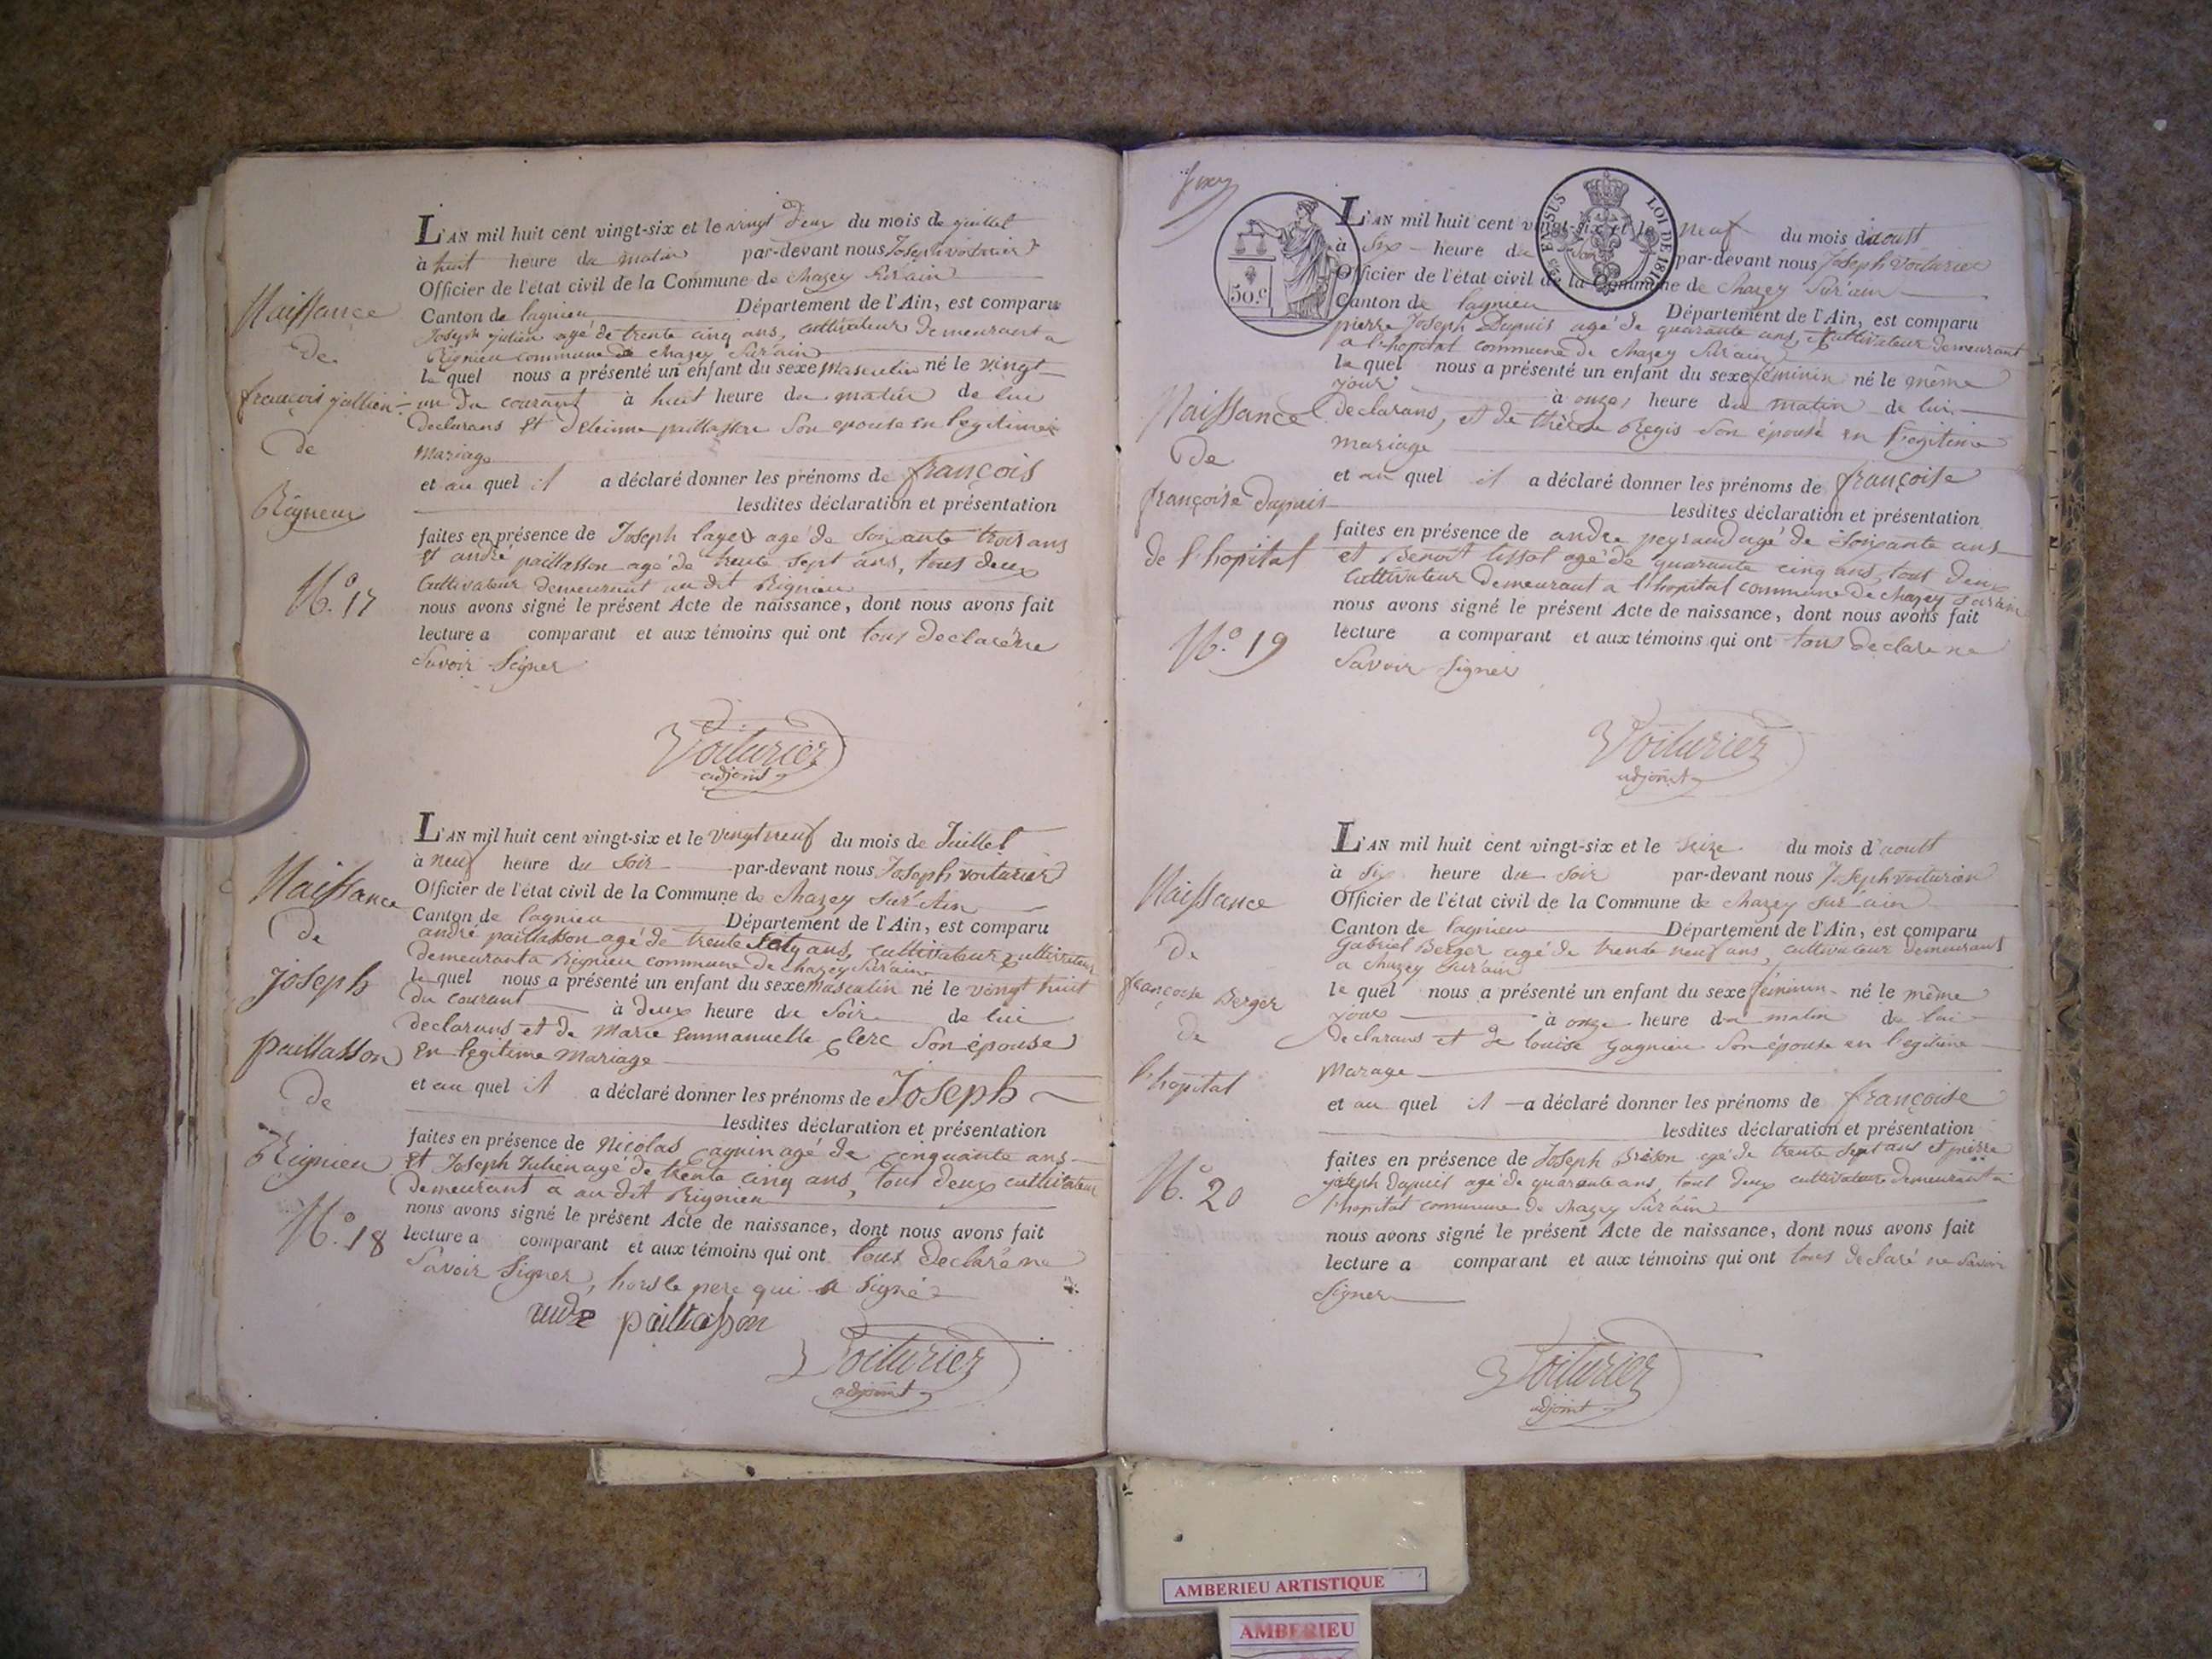 L'AN mil huit cent vingt-six et le vingt deux du mois de juillet
à huit heure du matin par-devant nous Joseph voiturier
Officier de l'état civil de la Commune de chazey Sur ain
Canton de lagnieu Département de l'Ain, est comparu
Joseph julien agé de trente cinq ans, cultivateur demeurant a
Rignieu commune de chazey Sur ain
le quel nous a présenté un enfant du sexe masculin né le vingt
un du courant à huit heure du matin de lui
declarans et paillasson Son epouse en legitime
mariage
et au quel il a déclaré donner les prénoms de françois
lesdites déclaration et présentation
faites en présence de Joseph layer agé de soixante trois ans
et andré paillasson agé de trente sept ans, tous deux
Cultivateur demeurant au dit Rignieu
nous avons signé le présent Acte de naissance, dont nous avons fait
lecture a comparant et aux témoins qui ont tous declaré ne
Savoir Signer
Voiturier
adjoint
Naissance
de
françois jullien
de
Rignieu
N.° 17
L'AN mil huit cent vingt-six et le vingt neuf du mois de Juillet
à neuf heure du soir par-devant nous Joseph voiturier
Officier de l'état civil de la Commune de chazey sur Ain
Canton de lagnieu Département de l'Ain, est comparu
andré paillasson agé de trente ans, cultivateur cultivateur
demeurant a Rignieu commune de chazey Sur ain
le quel nous a présenté un enfant du sexe masculin né le vingt huit
du courant à deux heure du Soir de lui
declarans et de Marie Emmanuelle clerc Son épouse
En legitime mariage
et au quel il a déclaré donner les prénoms de Joseph
lesdites déclaration et présentation
faites en présence de Nicolas cagnin agé de cinquante ans
Et Joseph Julien agé de trente cinq ans, tous deux cultivateur
demeurant a au dit Rignieu
nous avons signé le présent Acte de naissance, dont nous avons fait
lecture a comparant et aux témoins qui ont tous declaré ne
Savoir Signer, hors le pere qui a signé
paillasson
Voiturier
adjoint
Naissance
de
joseph
paillasson
de
Rignieu
N.° 18
50.c
LOI DE 1816
L'AN mil huit cent vingt-six et le neuf du mois d'aoust
à Six heure du soir par-devant nous Joseph voiturier
Officier de l'état civil de la Commune de chazey Sur ain
Canton de lagnieu Département de l'Ain, est comparu
pierre Joseph Dupuis agé de quarante ans, Cultivateur demeurant
a l'hopital commune de chazey Sur ain
le quel nous a présenté un enfant du sexe féminin né le même
jour à onze heure du matin de lui
declarans, et de thérèse Régis Son épouse en légitime
mariage
et au quel il a déclaré donner les prénoms de françoise
lesdites déclaration et présentation
faites en présence de andre peysaud agé de soixante ans
et Benoit tissot agé de quarante cinq ans, tout deux
Cultivateur demeurant a l'hopital commune de chazey Sur ain
nous avons signé le présent Acte de naissance, dont nous avons fait
lecture a comparant et aux témoins qui ont tous declaré ne
Savoir Signer
Voiturier
adjoint
Naissance
de
françoise dupuis
de l'hopital
N.° 19
L'AN mil huit cent vingt-six et le seize du mois d'aoust
à six heure du soir par-devant nous Joseph voiturier
Officier de l'état civil de la Commune de chazey sur ain
Canton de lagnieu Département de l'Ain, est comparu
Gabriel Berger agé de trente neuf ans, cultivateur demeurant
a chazey sur ain
le quel nous a présenté un enfant du sexe féminin né le même
jour à onze heure du matin de lui
declarans et de louise gagnieu Son épouse en légitime
Marage
et au quel il a déclaré donner les prénoms de françoise
lesdites déclaration et présentation
faites en présence de Joseph Brison agé de trente sept ans et pierre
joseph dupuis agé de quarante ans, tout deux cultivateur demeurant a
l'hopital commune de chazey Sur ain
nous avons signé le présent Acte de naissance, dont nous avons fait
lecture a comparant et aux témoins qui ont tous declaré ne Savoir
Signer
Voiturier
adjoint
Naissance
de
françoise Berger
de
l'hopital
N.° 20
AMBERIEU ARTISTIQUE
AMBERIEU